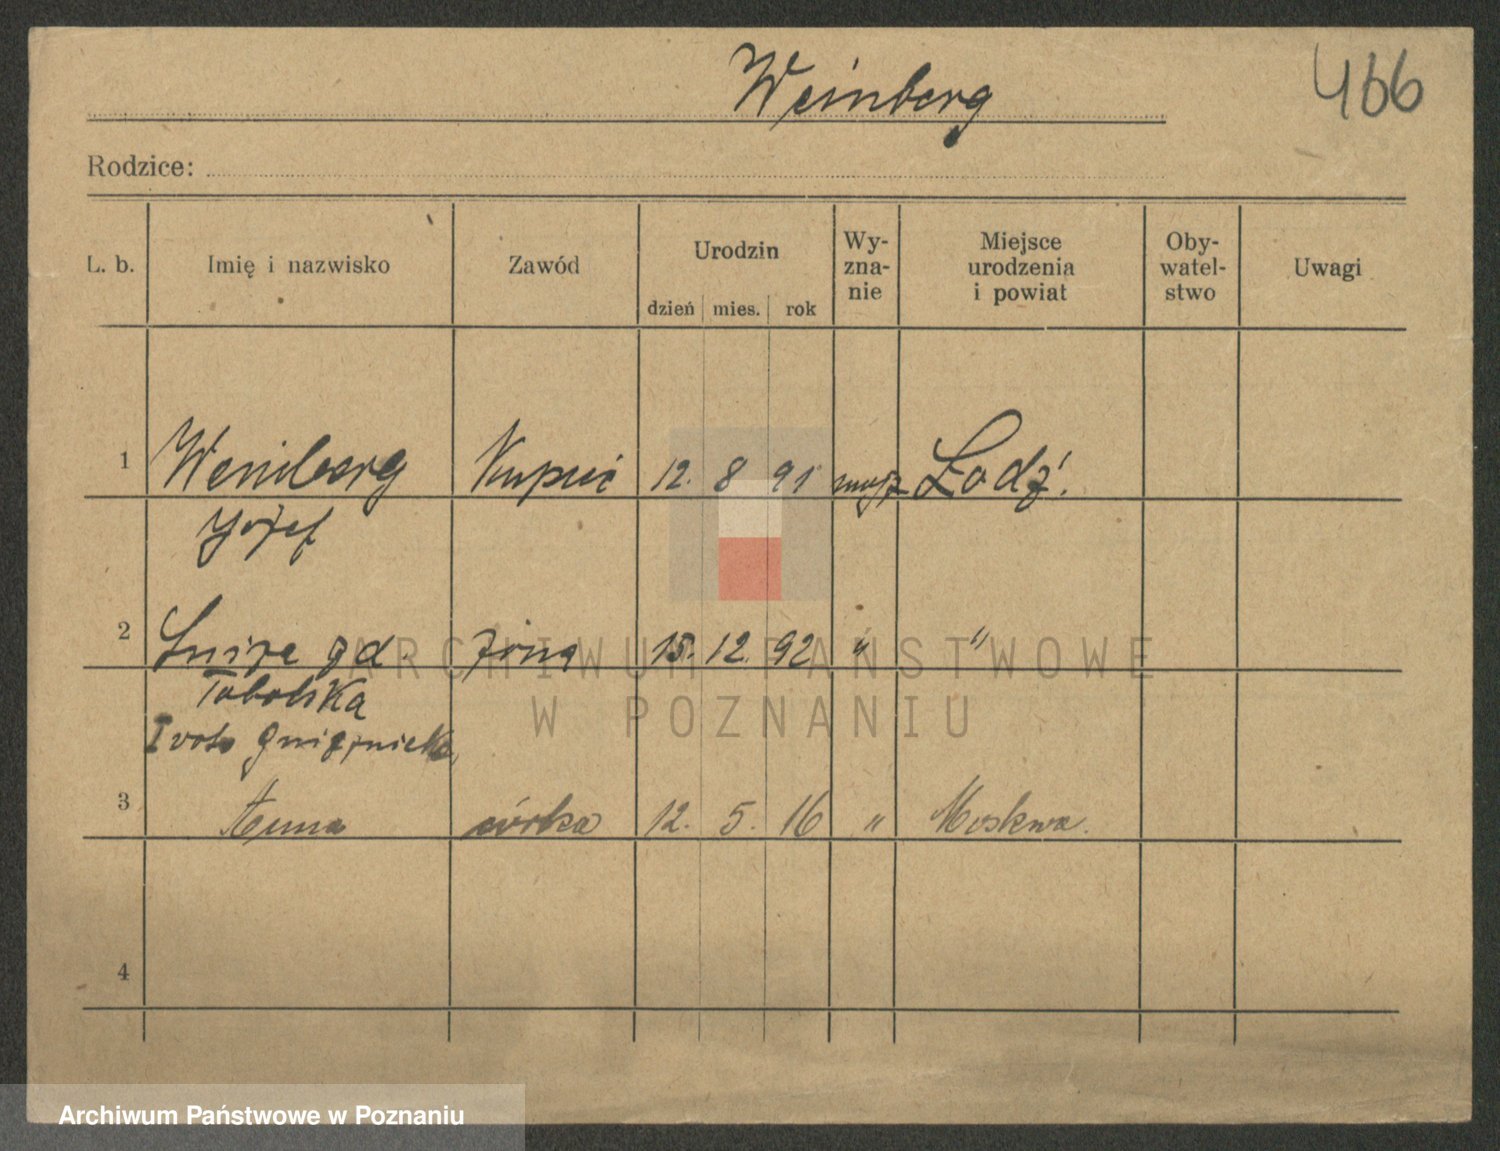 Weinberg
466
Rodzice:
L. b. Imię i nazwisko Zawód Urodzin dzień mies. rok Wy- zna- nie Miejsce urodzenia i powiat Oby- watel- stwo Uwagi
1 Weinberg Kupiec 12. 8 91 mojż Łodź.
Józef
2 Luiza gd. żona 15. 12. 92 " "
Tobolska
I voto
3 Anna córka 12. 5. 16 " Moskwa.
4
ARCHIWUM PAŃSTWOWE
W POZNANIU
Archiwum Państwowe w Poznaniu